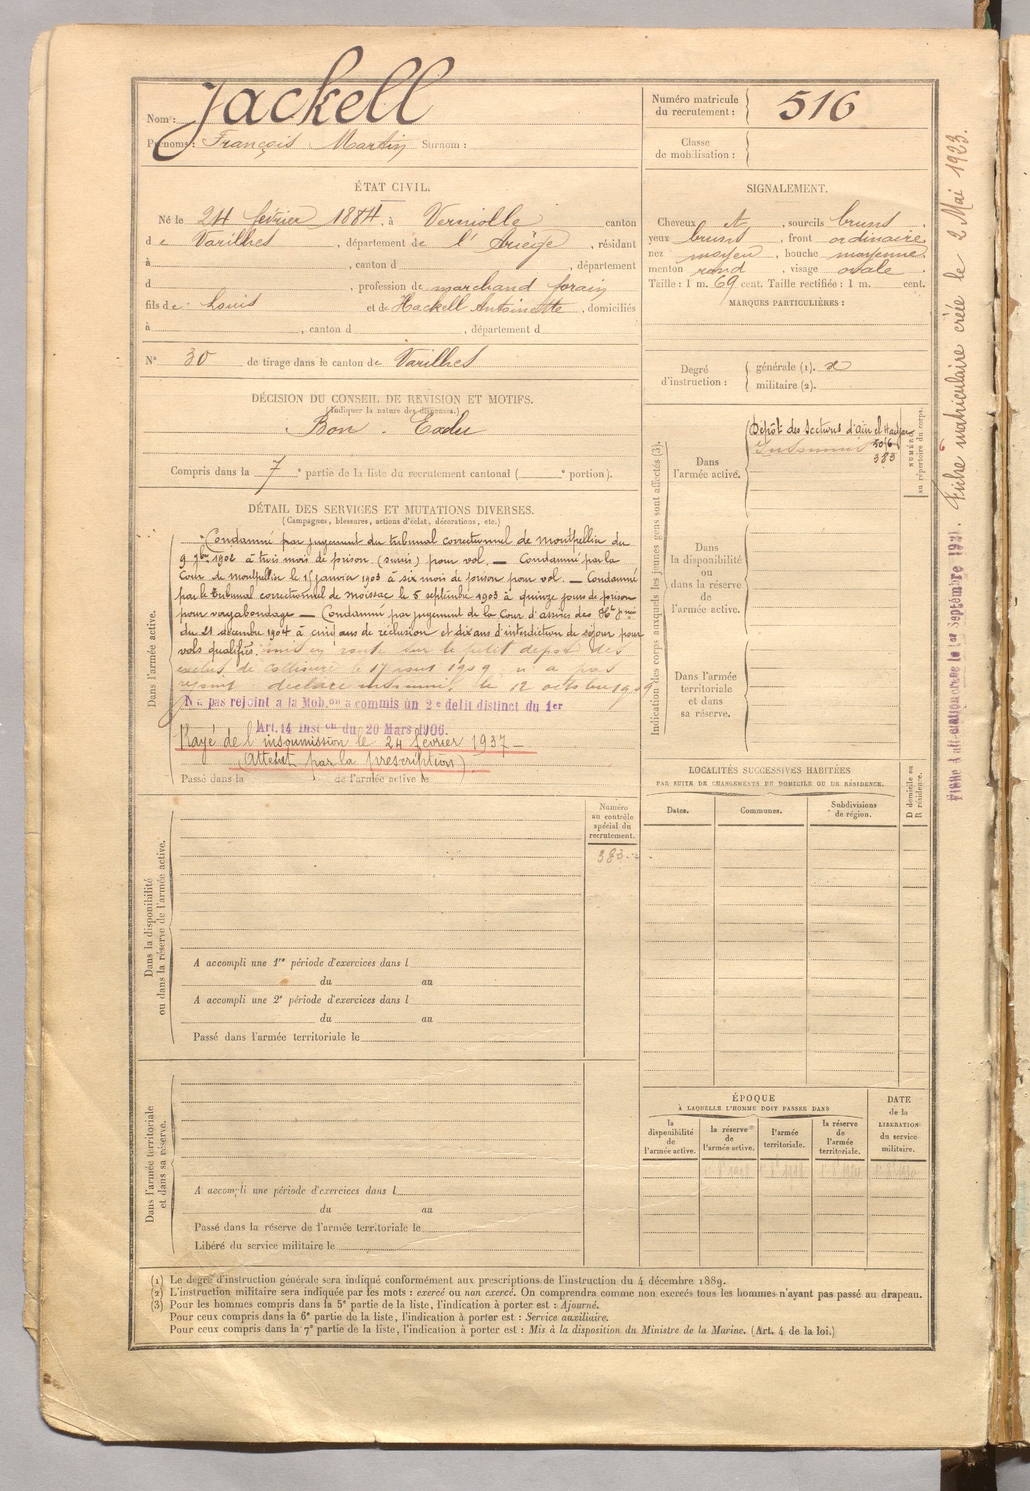 Nom : Jackell
Prénoms : François Martin Surnom :
Numéro matricule du recrutement : 516
Classe de mobilisation :
ÉTAT CIVIL.
Né le 24 février 1884, à Verniolle canton
de Varilhes, département de l'Ariège, résidant
à , canton d , département
d , profession de marchand forain
fils de Louis et de Hackell Antoinette, domiciliés
à , canton d , département d
N° 30 de tirage dans le canton de Varilhes
SIGNALEMENT.
Cheveux et , sourcils bruns
yeux bruns , front ordinaire
nez moyen , bouche moyenne
menton rond , visage ovale
Taille : 1 m. 69 cent. Taille rectifiée : 1 m. cent.
MARQUES PARTICULIÈRES :
Degré d'instruction : générale (1).
militaire (2).
DÉCISION DU CONSEIL DE REVISION ET MOTIFS.
(Indiquer la nature des dispenses.)
Bon. Exclu
Compris dans la 7e partie de la liste du recrutement cantonal ( e portion).
DÉTAIL DES SERVICES ET MUTATIONS DIVERSES.
(Campagnes, blessures, actions d'éclat, décorations, etc.)
Dans l'armée active.
Condamné par jugement du tribunal correctionnel de Montpellier du
9 1902 à trois mois de prison (sursis) pour vol. — Condamné par la
Cour de Montpellier le janvier 1903 à six mois de prison pour vol. — Condamné
par le tribunal correctionnel de Moissac le 5 septembre 1903 à quinze jours de prison
pour vagabondage — Condamné par jugement de la Cour d'assises des
du 21 décembre 1904 à cinq ans de réclusion et dix ans d'interdiction de séjour pour
vols qualifiés. mis en route sur le petit dépôt des
exclus de Collioure le 17 aout 1909 n'a pas
rejoint déclaré insoumis le 12 octobre 1909
N'a pas rejoint a la Mob.on a commis un 2e délit distinct du 1er
Art. 14 Inst on du 20 Mars 1906.
Rayé de l'insoumission le 24 février 1937 —
(Atteint par la prescription).
Passé dans la de l'armée active le
Indication des corps auxquels les jeunes gens sont affectés (3).
Dans l'armée active.
Dépôt des Sections d'Aïn el Hadjar
Insoumis 5016
383
NUMÉRO au répertoire du corps.
Dans la disponibilité ou dans la réserve de l'armée active.
Dans l'armée territoriale et dans sa réserve.
LOCALITÉS SUCCESSIVES HABITÉES
PAR SUITE DE CHANGEMENTS DE DOMICILE OU DE RÉSIDENCE.
Dates. Communes. Subdivisions de région. D domicile ou R résidence.
Numéro au contrôle spécial du recrutement.
383
Dans la disponibilité ou dans la réserve de l'armée active.
A accompli une 1re période d'exercices dans l
du au
A accompli une 2e période d'exercices dans l
du au
Passé dans l'armée territoriale le
Dans l'armée territoriale et dans sa réserve.
A accompli une période d'exercices dans l
du au
Passé dans la réserve de l'armée territoriale le
Libéré du service militaire le
ÉPOQUE
À LAQUELLE L'HOMME DOIT PASSER DANS
la disponibilité de l'armée active. la réserve de l'armée active. l'armée territoriale. la réserve de l'armée territoriale.
DATE de la LIBÉRATION du service militaire.
(1) Le degré d'instruction générale sera indiqué conformément aux prescriptions de l'instruction du 4 décembre 1889.
(2) L'instruction militaire sera indiquée par les mots : exercé ou non exercé. On comprendra comme non exercés tous les hommes n'ayant pas passé au drapeau.
(3) Pour les hommes compris dans la 5e partie de la liste, l'indication à porter est : Ajourné.
Pour ceux compris dans la 6e partie de la liste, l'indication à porter est : Service auxiliaire.
Pour ceux compris dans la 7e partie de la liste, l'indication à porter est : Mis à la disposition du Ministre de la Marine. (Art. 4 de la loi.)
Fiche matriculaire créée le 2 Mai 1923.
le 1er Septembre 1921.